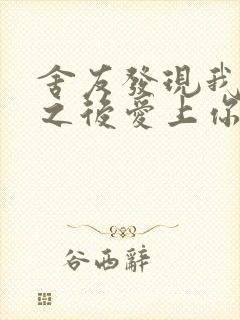 舍友發現我
之後愛上你
谷西辭